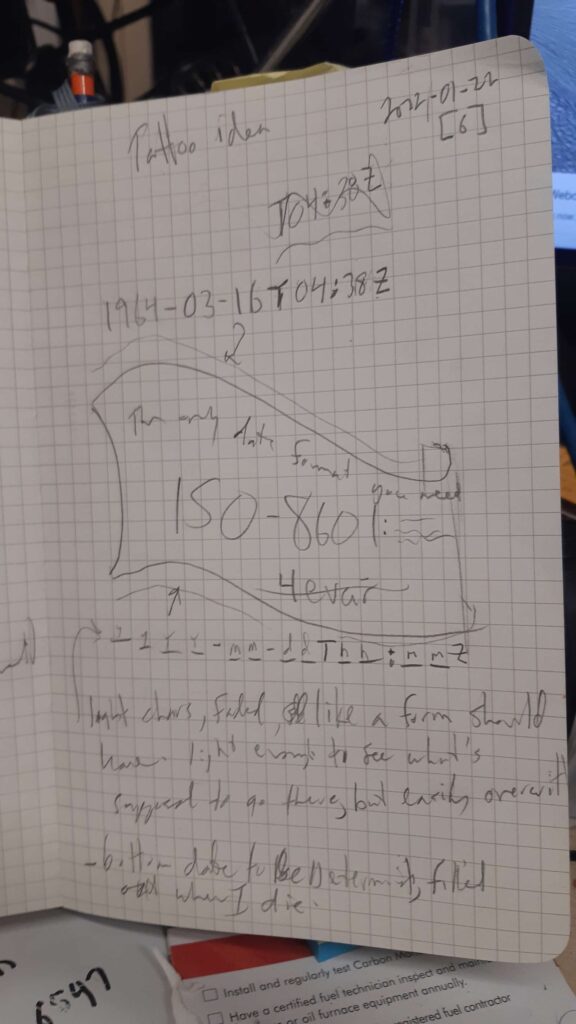 2022-01-22
[6]
Tattoo idea
T04:38Z
1964-03-16T04:38Z
The only date format you need
ISO-8601:
4evar
y y y y - m m - d d T h h : m m Z
light chars, faded, like a form should
have. light enough to see what's
supposed to go there, but easily overwritt
- bottom date to be Determined, filled
out when I die.
6547
Install and regularly test Carbon Mo
Have a certified fuel technician inspect and main
or oil furnace equipment annually.
gistered fuel contractor